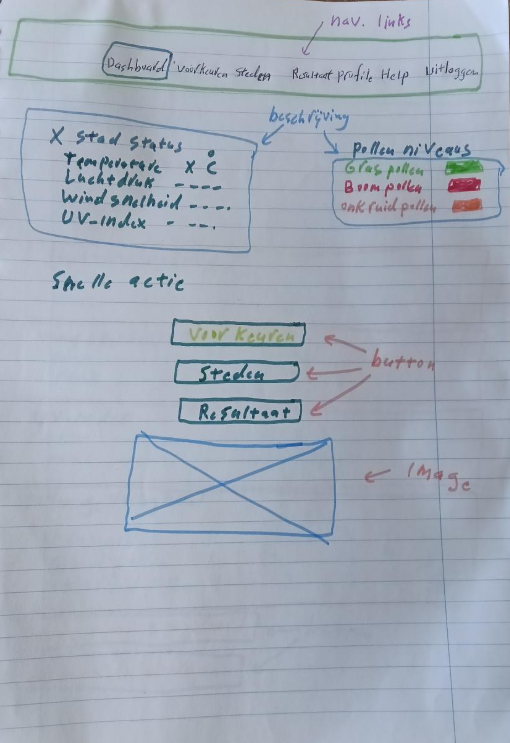 nav. links
Dashboard Voorkeuren Steden Resultaat Profile Help Uitloggen
beschrijving
X Stad status
Temperature X °C
Luchtdruk - - - -
Windsnelheid - - - -.
UV-Index - - -.
pollen niveaus
Gras pollen
Boom pollen
onkruid pollen
Snelle actie
Voorkeuren
Steden
Resultaat
button
Image